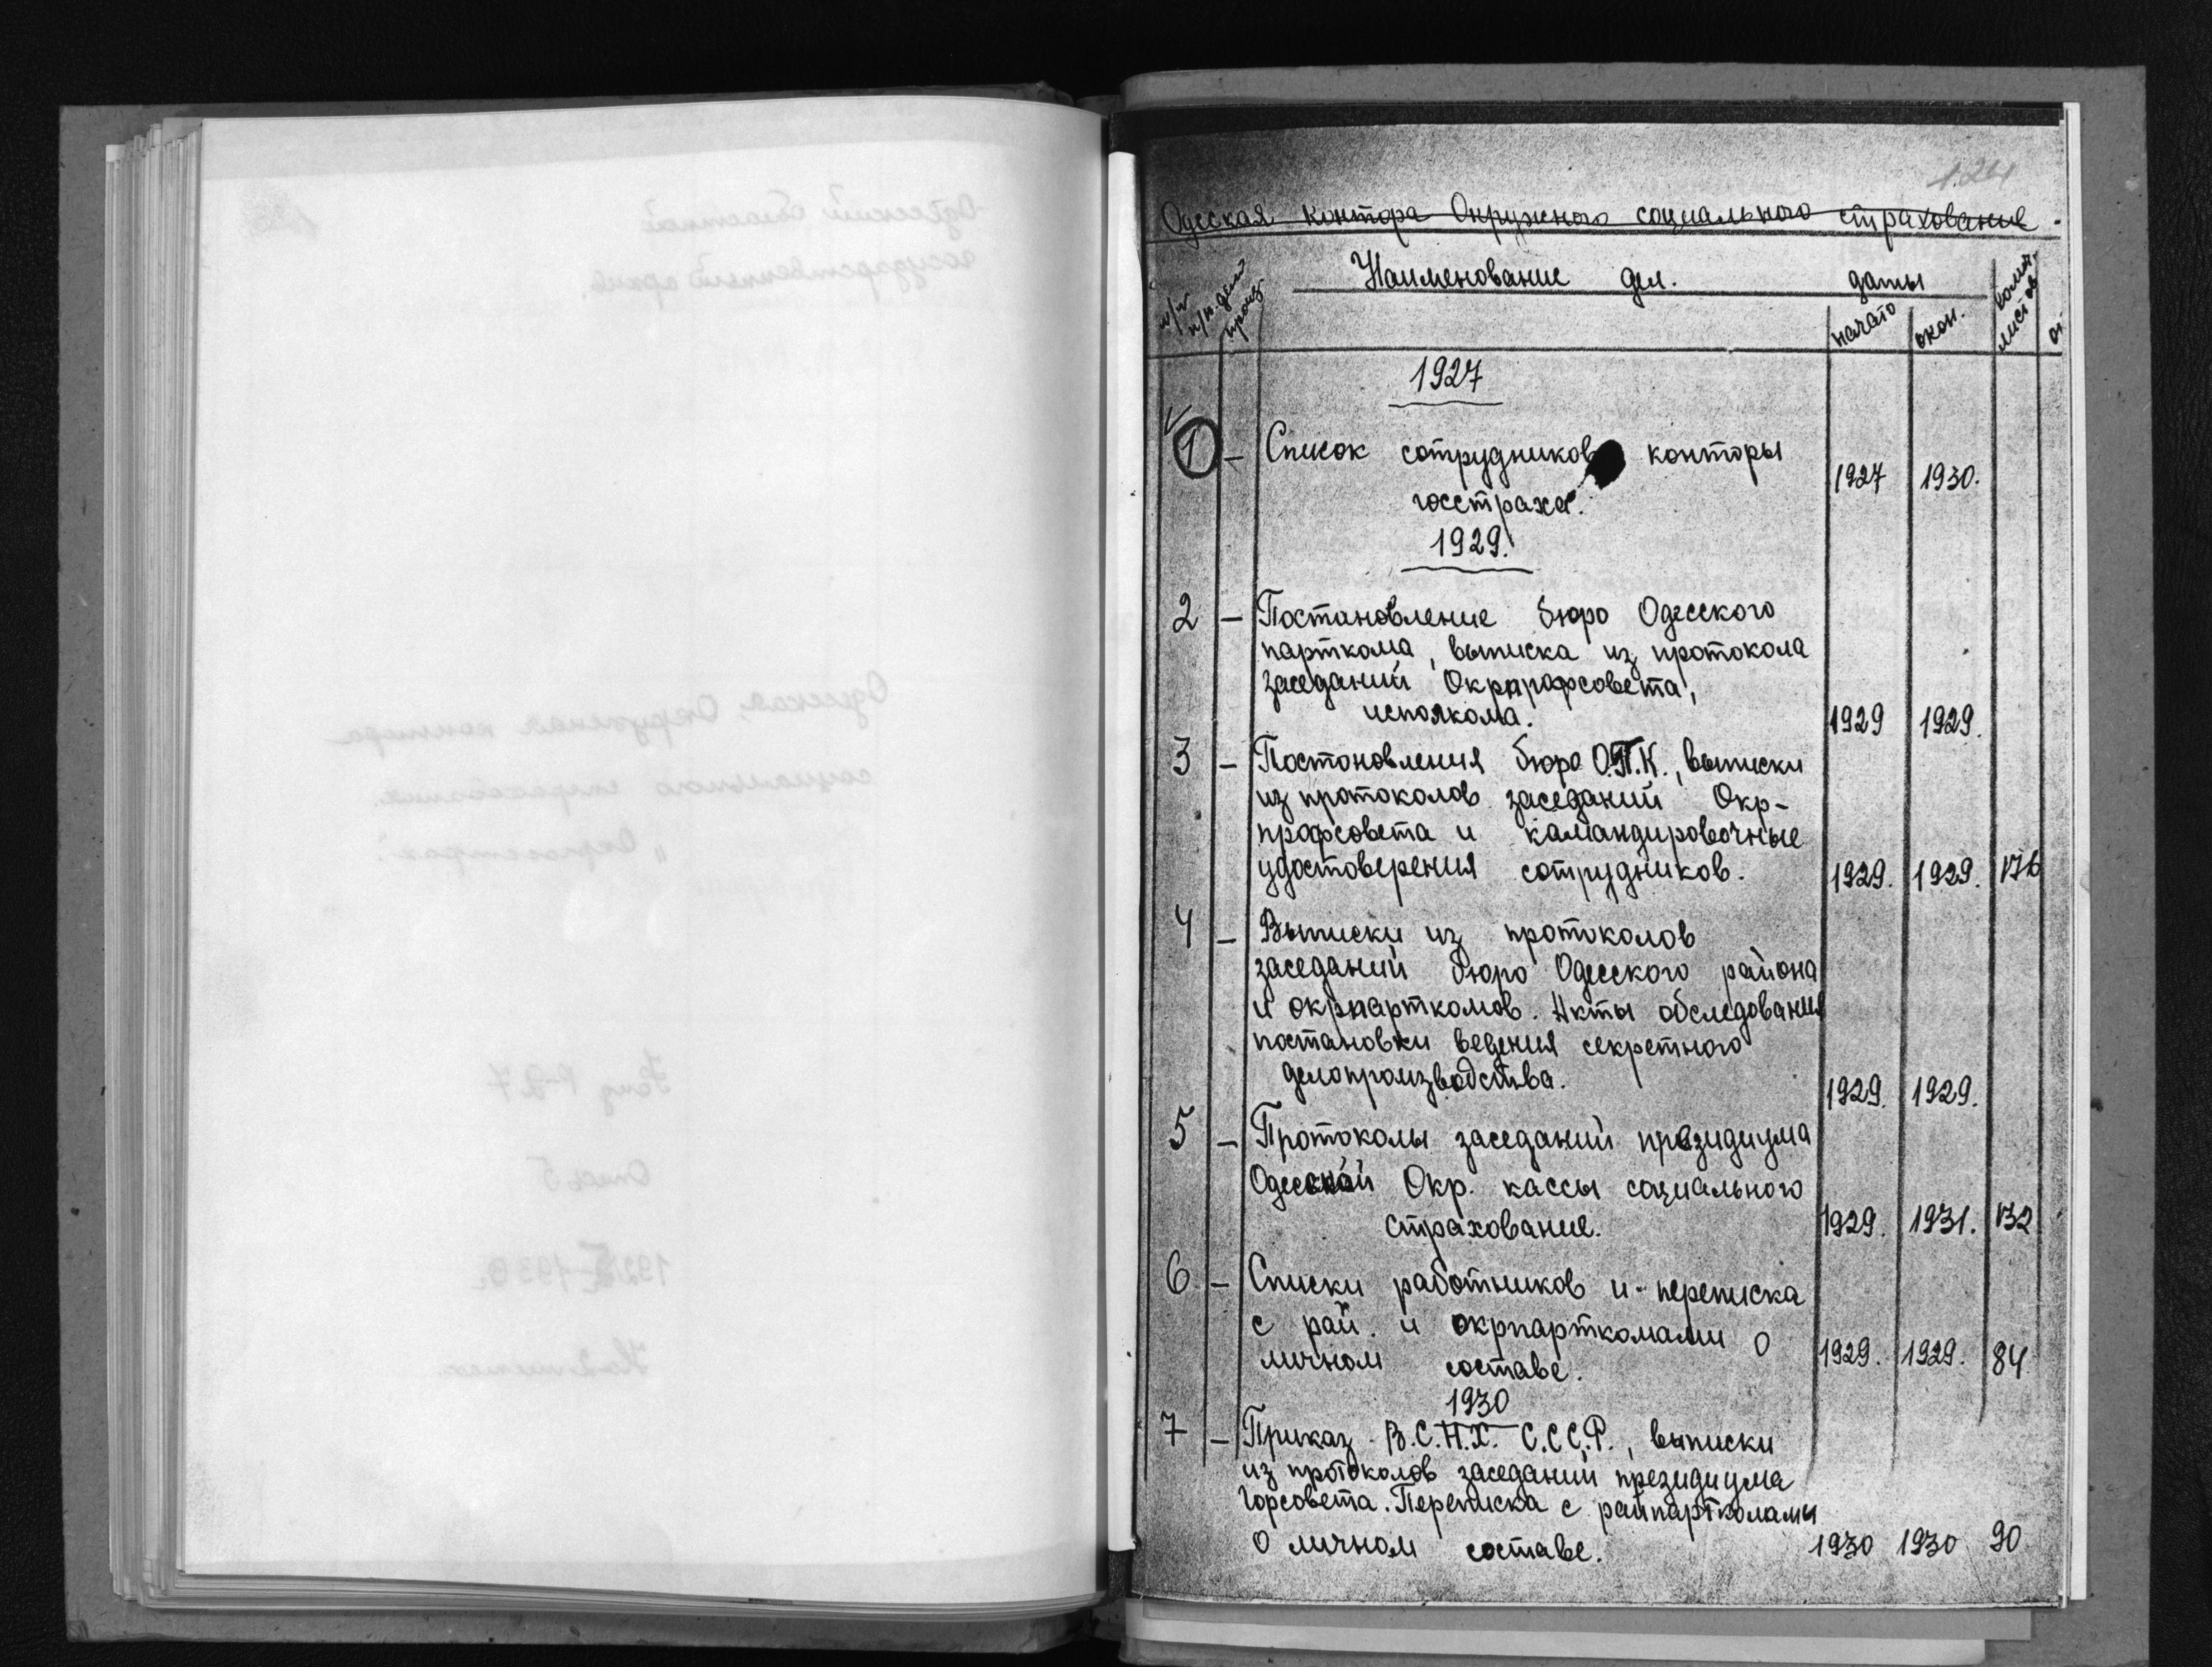 124
Одесская контора Окружного социального страхование.
п/п п/п дел произ Наименование дел. даты колич. листов
начато окон.
1927
1 — Список сотрудников конторы
госстраха. 1927 1930.
1929.
2 — Постановление бюро Одесского
парткома, выписка из протокола
заседаний Окрпрофсовета,
исполкома. 1929 1929.
3 — Постоновления бюро О.П.К., выписки
из протоколов заседаний Окр-
профсовета и камандировочные
удостоверения сотрудников. 1929. 1929. 176
4 — Выписки из протоколов
заседаний бюро Одесского района
и окрпарткомов. Акты обследования
постановки ведения секретного
делопроизводства. 1929. 1929.
5 — Протоколы заседаний президиума
Одесской Окр. кассы социального
страхование. 1929. 1931. 132
6. — Списки работников и переписка
с рай. и окрпарткомами о
личном составе. 1929. 1929. 84
1930
7 — Приказ В.С.Н.Х. С.С.С.Р., выписки
из протоколов заседаний президиума
Горсовета. Переписка с райпарткомами
о личном составе. 1930 1930 90